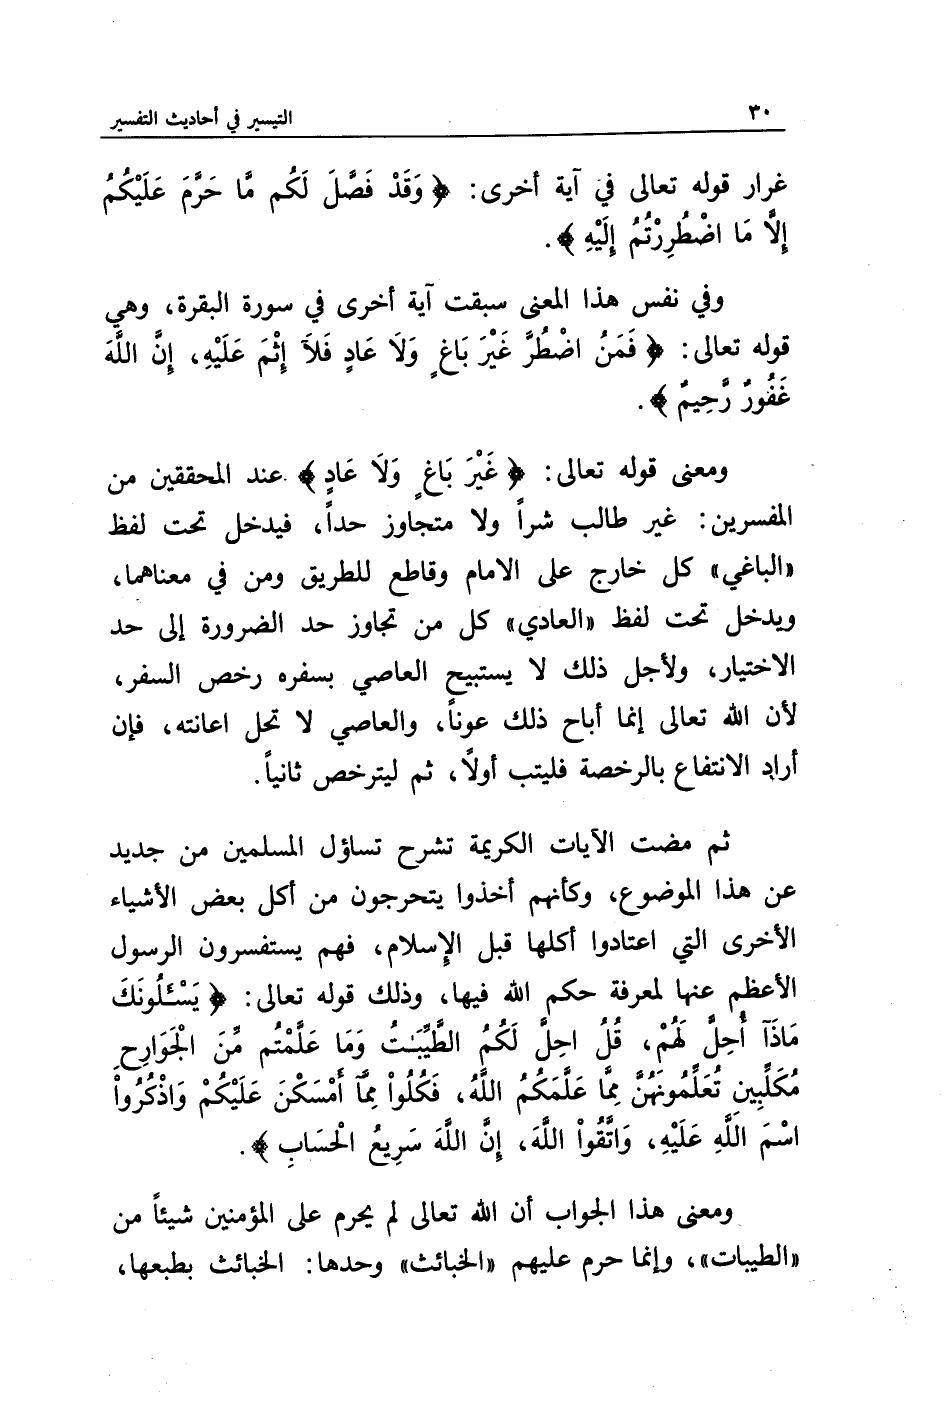 ٣٠
التيسير في أحاديث التفسير
غرار قوله تعالى في آية أخرى: ﴿ وَقَدْ فَصَّلَ لَكُم مَّا حَرَّمَ عَلَيْكُمُ
إِلَّا مَا اضْطُرِرْتُمُ إِلَيْهِ ﴾.
وفي نفس هذا المعنى سبقت آية أخرى في سورة البقرة، وهي
قوله تعالى: ﴿ فَمَنُ اضْطُرَّ غَيْرَ بَاغٍ وَلَا عَادٍ فَلَآ إِثْمَ عَلَيْهِ، إِنَّ اللَّهَ
غَفُورٌ رَّحِيمٌ ﴾.
ومعنى قوله تعالى: ﴿ غَيْرَ بَاغٍ وَلَا عَادٍ ﴾ عند المحققين من
المفسرين: غير طالب شراً ولا متجاوز حداً، فيدخل تحت لفظ
«الباغي» كل خارج على الامام وقاطع للطريق ومن في معناهما،
ويدخل تحت لفظ «العادي» كل من تجاوز حد الضرورة إلى حد
الاختيار، ولأجل ذلك لا يستبيح العاصي بسفره رخص السفر،
لأن الله تعالى إنما أباح ذلك عوناً، والعاصي لا تحل اعانته، فإن
أراد الانتفاع بالرخصة فليتب أولاً، ثم ليترخص ثانياً.
ثم مضت الآيات الكريمة تشرح تساؤل المسلمين من جديد
عن هذا الموضوع، وكأنهم أخذوا يتحرجون من أكل بعض الأشياء
الأخرى التي اعتادوا أكلها قبل الإسلام، فهم يستفسرون الرسول
الأعظم عنها لمعرفة حكم الله فيها، وذلك قوله تعالى: ﴿ يَسْـَٔلُونَكَ
مَاذَآ أُحِلَّ لَهُمْ، قُلُ احِلَّ لَكُمُ الطَّيِّبَـٰتُ وَمَا عَلَّمْتُم مِّنَ الْجَوَارِحِ
مُكَلِّبِينَ تُعَلِّمُونَهُنَّ مِمَّا عَلَّمَكُمُ اللَّهُ، فَكُلُواْ مِمَّآ أَمْسَكْنَ عَلَيْكُمْ وَاذْكُرُواْ
اسْمَ اللَّهِ عَلَيْهِ، وَاتَّقُواْ اللَّهَ، إِنَّ اللَّهَ سَرِيعُ الْحَسَابِ ﴾.
ومعنى هذا الجواب أن الله تعالى لم يحرم على المؤمنين شيئاً من
«الطيبات»، وإنما حرم عليهم «الخبائث» وحدها: الخبائث بطبعها،